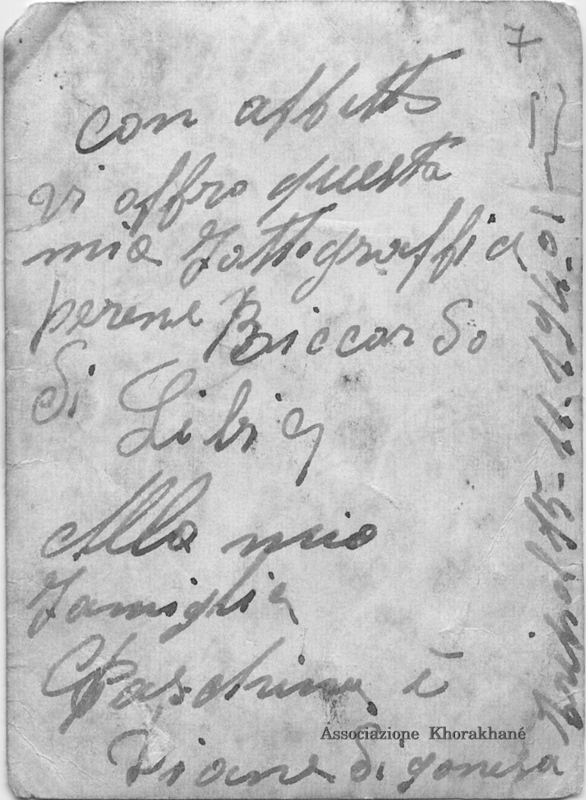 7
con affetto
vi offro questa
mia fottograffia
perene Riccardo
di Libia
Alla mia
famiglia
Paschina è
Viane di gonesa
15-11-1940!
Associazione Khorakhané